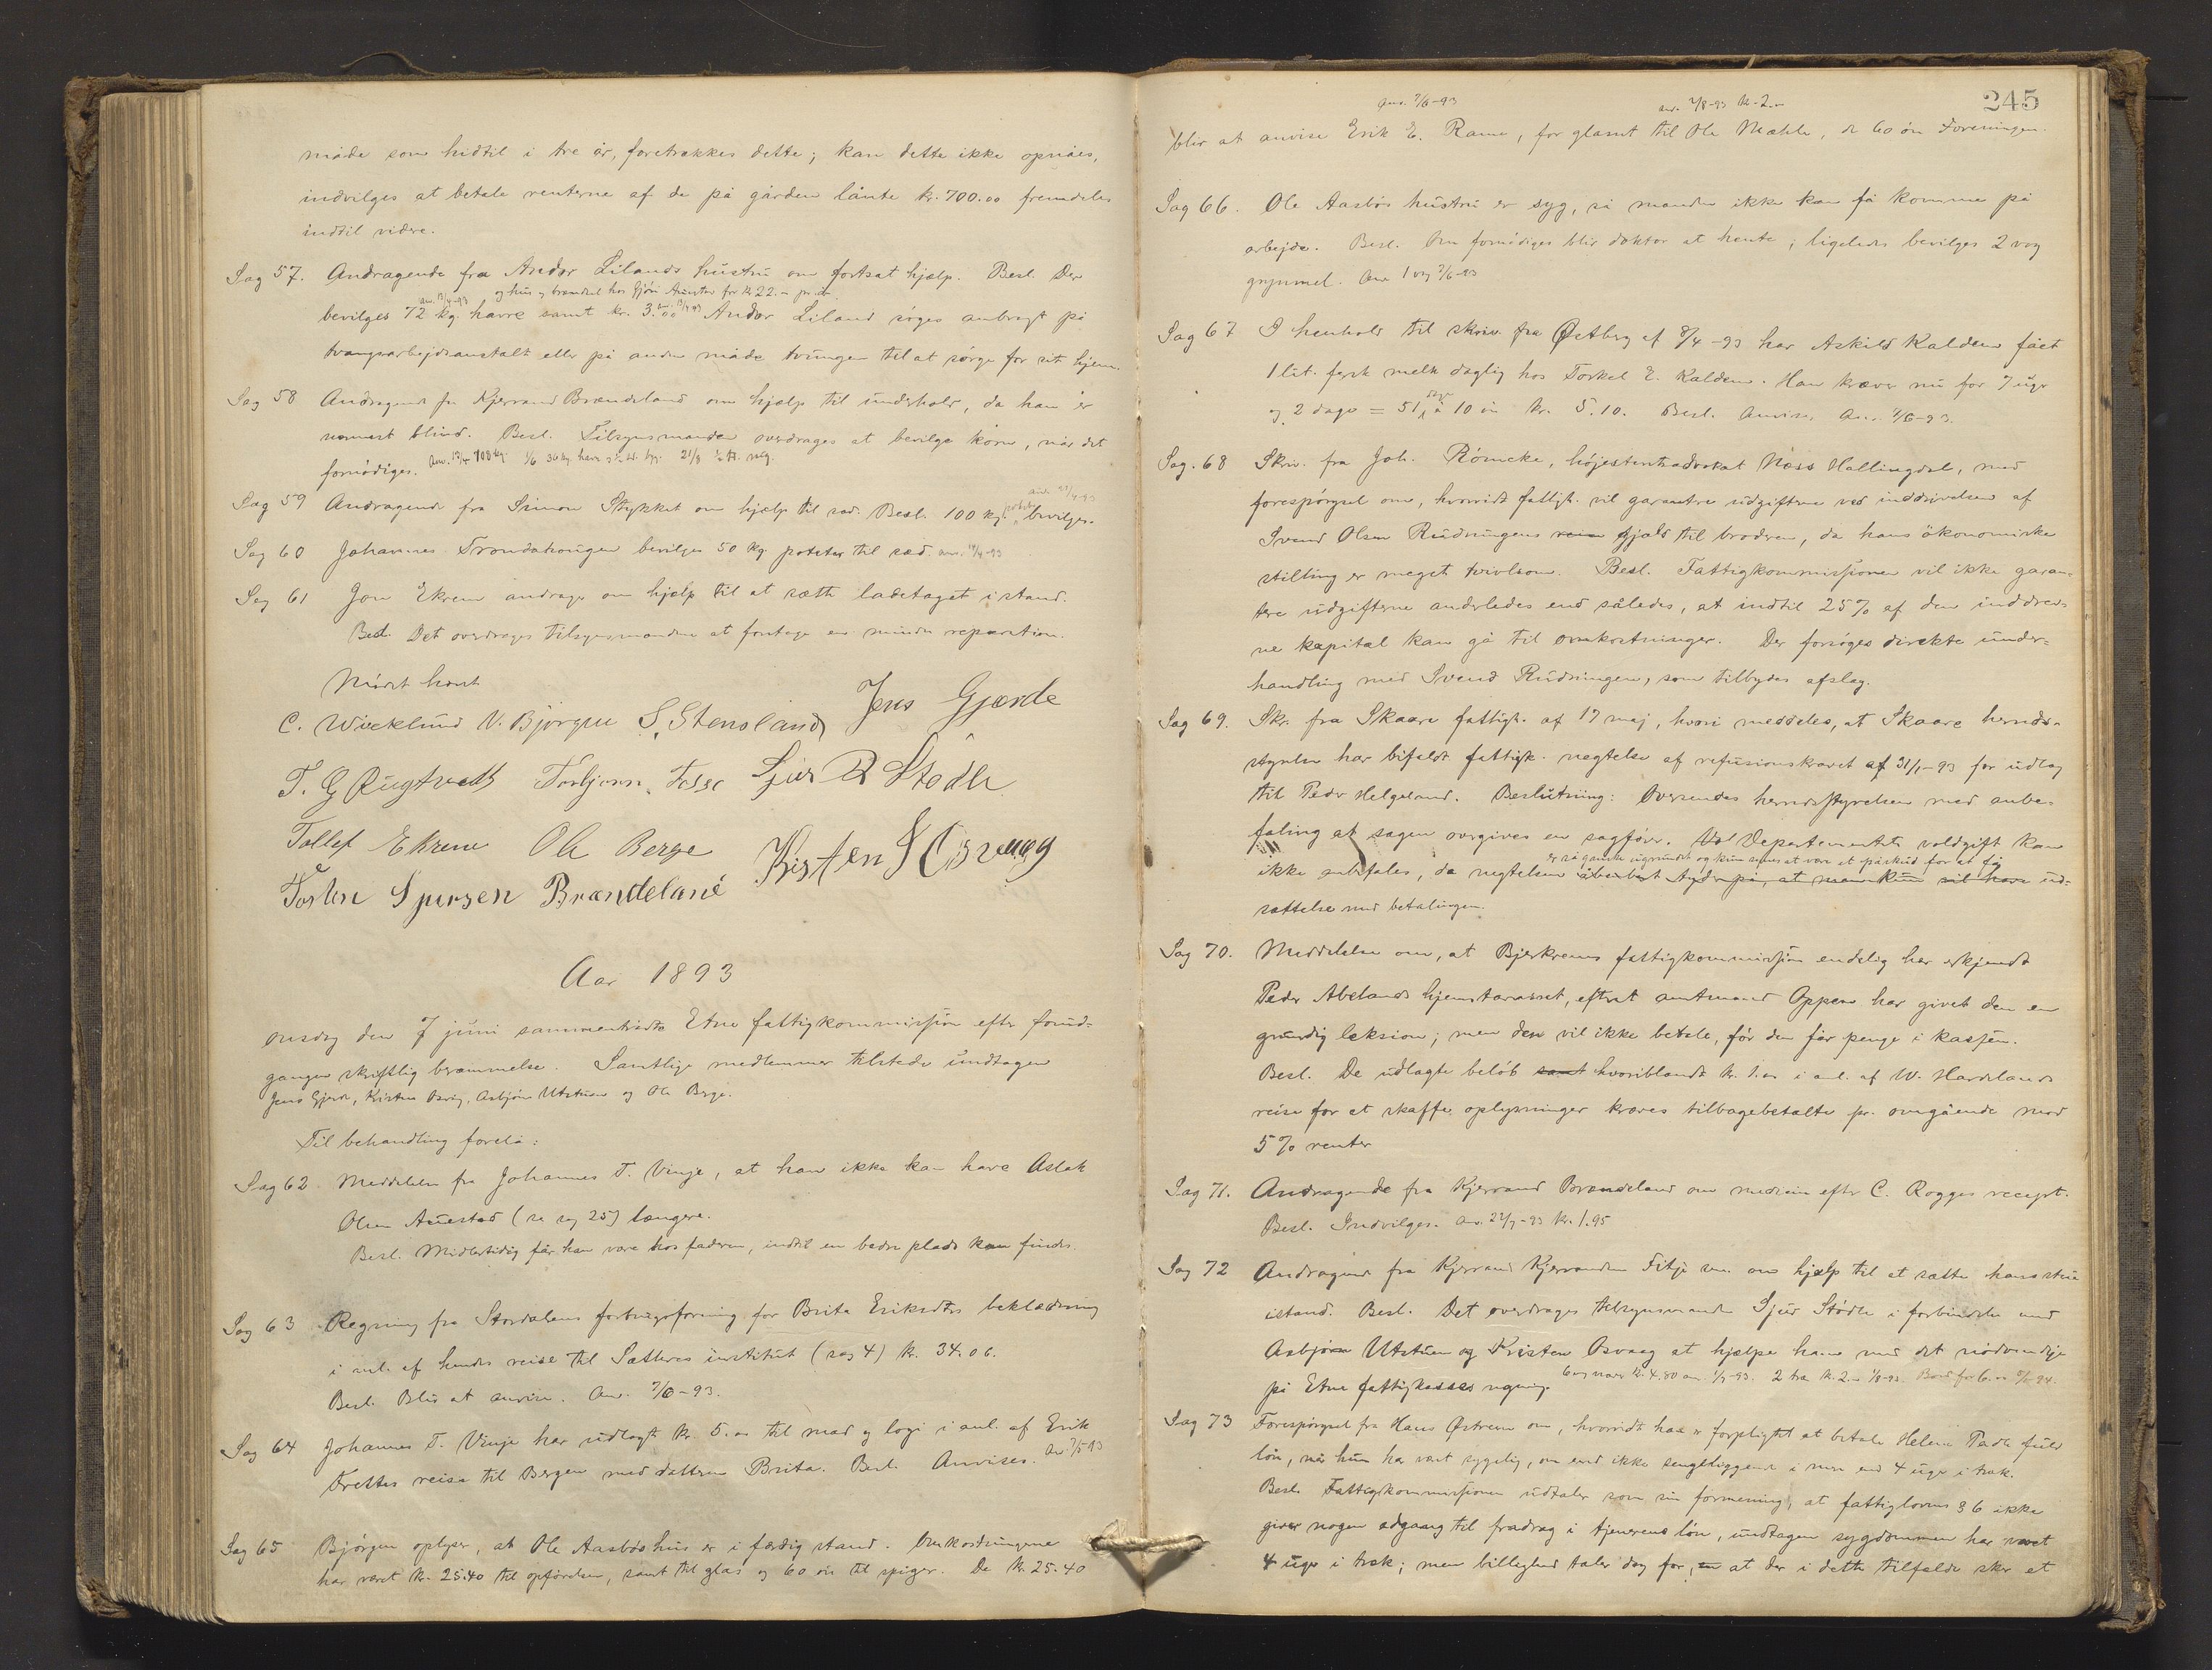 måde som hidtil i tre år, foretrækkes dette; kan dette ikke opnåes,
indvilges at betale renterne af de på gården lånte kr. 700.00 fremdeles
indtil videre.
Sag 57. Andragende fra Andor Lilands hustru om fortsat hjælp. Besl. Der
og hus og brændsel hos Gjøri for kr 22.– pr. år
bevilges 72 kg. havre samt kr. 3.00 Andor Liland søges anbragt på
anv. 13/4-93
tvangsarbejdsanstalt eller på anden måde tvungen til at sørge for sit hjem.
Sag 58 Andragende fra Kjerrand Brændeland om hjælp til underhold, da han er
nærmest blind. Besl. Tilsynsmanden overdrages at bevilge korn, når det
fornødiges. Anv. 13/4 108 kg. 1/6 36 kg. havre
Sag 59 Andragende fra Simon Stykket om hjælp til sæd. Besl. 100 kg. poteter bevilges.
Sag 60 Johannes Trondahougen bevilges 50 kg. poteter til sæd. anv. 19/4-93
Sag 61 Jon Ekrem andrager om hjælp til at sætte ladetaget i stand.
Besl. Det overdrages tilsynsmanden at foretage en mindre reparation.
Mødet hævt
C. Wicklund V. Bjørgen S. Stensland Jens Gjærde
T. G Rugtvedt Torbjørn Fosse Sjur R Stødle
Tollef Ekrene Ole Berge Kristen S Osvaag
Tosten Sjursen Brændeland
Aar 1893
onsdag den 7 juni sammentrådte Etne fattigkommission efter forud-
gangen skriftlig berammelse. Samtlige medlemmer tilstede undtagen
Jens Gjerde, Kristen Osvåg, Asbjørn Utstuen og Ole Berge.
Til behandling forelå:
Sag 62 Meddelelse fra Johannes T. Vinje, at han ikke kan have Aslak
Olsen Auestad (se sag 25) længere.
Besl. Midlertidig får han være hos faderen, indtil en bedre plads kan findes.
Sag 63 Regning fra Stordalens forbrugsforening for Brita Eriksdtrs beklædning
i anl. af hendes reise til Sætheres institut (sag 4) kr. 34.06.
Besl. Blir at anvise. Anv. 7/6-93.
Sag 64 Johannes T. Vinje har udlagt kr 5.00 til mad og logi i anl. af Erik
Frettes reise til Bergen med datteren Brita. Besl. Anvises.
Sag 65 Bjørgen oplyser, at Ole Aasbøs hus er i færdig stand. Omkostningerne
har været kr. 25.40 til opførelsen, samt til glas og 60 øre til spiger. De kr 25.40
245
Anv. 7/6-93 anv. 7/8-93 kr. 2.–
blir at anvise Erik E. Rame, for glasset til Ole Mæhle, de 60 øre Foreningen.
Sag 66. Ole Aasbøs hustru er syg, så manden ikke kan få komme på
arbejde. Besl. Om fornødiges blir doktor at hente; ligeledes bevilges 2 vog
grynmel. Anv 1 vog 7/6-93
Sag 67 I henhold til skriv. fra Østberg af 8/4-93 har Askild Kaldem fået
1 lit. fersk melk daglig hos Torkel E. Kaldem. Han kræver nu for 7 uger
og 2 dage = 51 dage à 10 øre kr. 5.10. Besl. Anvises Anv. 7/6-93.
Sag. 68 Skriv. fra Joh. Römcke, højesteretsadvokat Næss Hallingdal, med
forespørgsel om, hvorvidt fattigk. vil garantere udgifterne ved inddrivelsen af
Svend Olsen Rudningens gjæld til broderen, da hans økonomiske
stilling er meget tvivlsom. Besl. Fattigkommissionen vil ikke garan-
tere udgifterne anderledes end således, at indtil 25 % af den inddrev-
ne kapital kan gå til omkostninger. Der forsøges direkte under-
handling med Svend Rudningen, som tilbydes afslag.
Sag 69. Skr. fra Skaare fattigk. af 17 maj, hvori meddeles, at Skaare herreds-
styrelse har bifaldt fattigk. nægtelse af refusionskravet af 31/1-93 for udlæg
til Peder Helgeland. Beslutning: Oversendes herredsstyrelsen med anbe-
faling at sagen overgives en sagfører. Ved Departementets voldgift kan
er så ganske ugrundet og kun synes at være et påskud for at få
ikke anbefales, da nægtelsen åbenbart tyder på, at man kun vil have ud-
sættelse med betalingen.
Sag 70. Meddelelse om, at Bjerkrems fattigkommission endelig har erkjendt
Peder Abelands hjemstavnsret, efterat amtmand Oppen har givet den en
grundig leksion; men den vil ikke betale, før den får penge i kassen.
Besl. De udlagte beløb samt hvoriblandt kr. 1.00 i anl. af W. Hardelands
reise for at skaffe oplysninger kræves tilbagebetalte pr. omgående med
5 % renter
Sag 71. Andragende fra Kjerrand Brændeland om medicin efter C. Rogges recept.
Besl. Indvilges. Anv. 22/7-93 kr. 1.95
Sag 72 Andragende fra Kjerrand Kjerrandsen Fitje om hjælp til at sætte hans stue
istand. Besl. Det overdrages tilsynsmanden Sjur Stødle i forbindelse med
Asbjørn Utstuen og Kristen Osvaag at hjælpe ham med det nødvendige
på Etne fattigkasses regning.
Sag 73 Forespørgsel fra Hans Østrem om, hvorvidt han er forpligtet at betale Helene Tadle fuld
løn, når hun har vært sygelig, om end ikke sengeliggende i mere end 4 uger i træk.
Besl. Fattigkommissionen udtaler som sin formening, at fattiglovens § 6 ikke
giver nogen adgang til fradrag i tjenerens løn, undtagen sygdommen har været
4 uger i træk; men billighed taler dog for, at der i dette tilfælde sker et